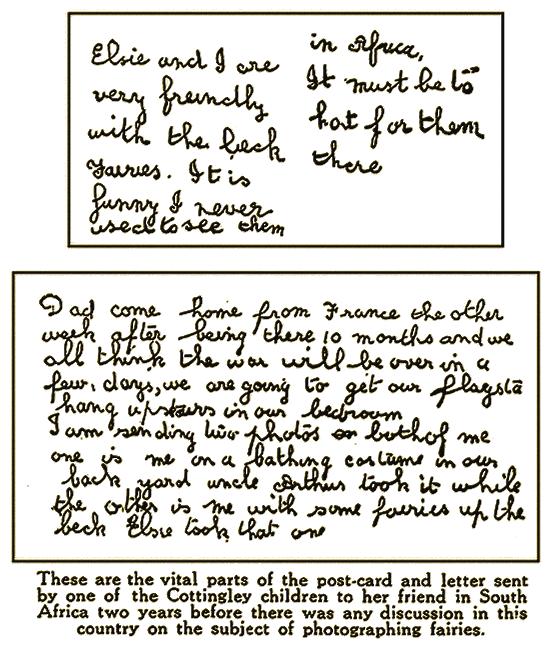 Elsie and I are
very freindly
with the beck
Fairies. It is
funny I never
used to see them
in Africa,
It must be to
hot for them
there
Dad come home from France the other
week after being there 10 months and we
all think the war will be over in a
few days, we are going to get our flags to
hang upstairs in our bedroom
I am sending two photos both of me
one is me on a bathing costume in our
back yard uncle Arthur took it while
the other is me with some fairies up the
beck Elsie took that one
These are the vital parts of the post-card and letter sent
by one of the Cottingley children to her friend in South
Africa two years before there was any discussion in this
country on the subject of photographing fairies.